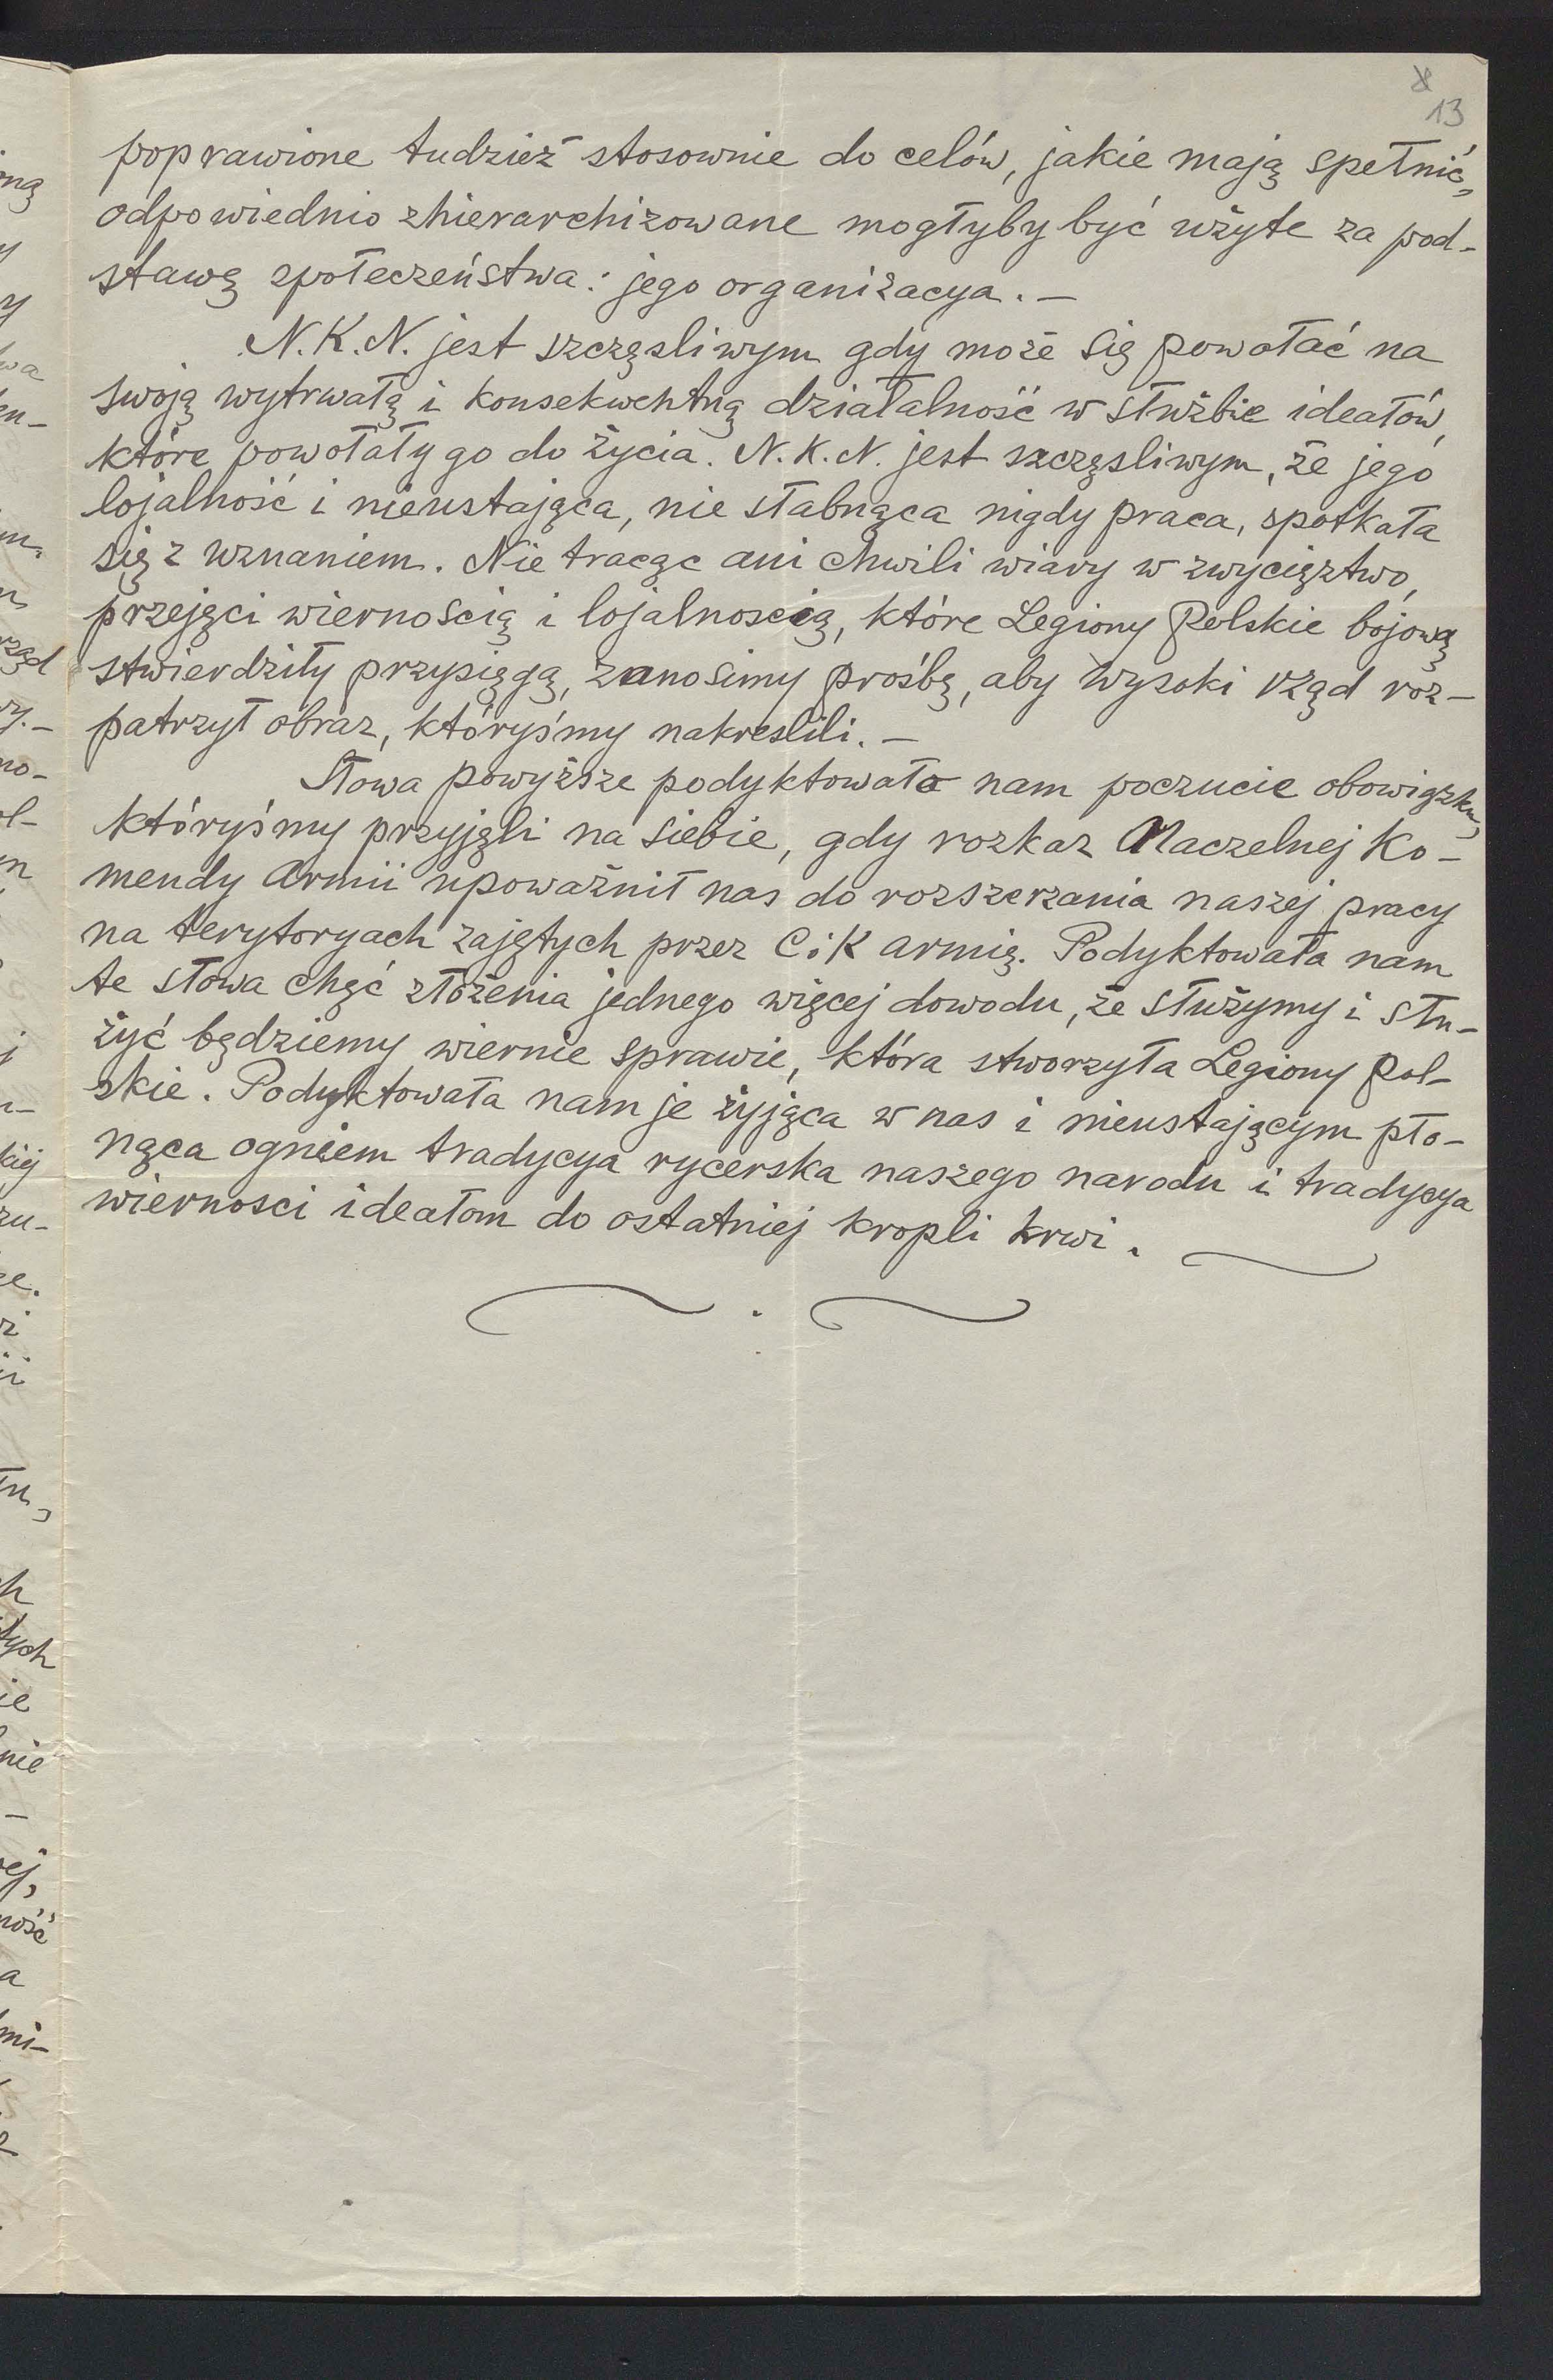 13
poprawione tudzież stosownie do celów, jakie mają spełnić,
odpowiednio zhierarchizowane mogłyby być użyte za pod-
stawę społeczeństwa: jego organizacya. —
N. K. N. jest szczęsliwym gdy może się powołać na
swoją wytrwałą i konsekwentną działalność w służbie ideałów,
które powołały go do życia. N. K. N. jest szczęsliwym, że jego
lojalność i nieustająca, nie słabnąca nigdy praca, spotkała
się z uznaniem. Nie tracąc ani chwili wiary w zwycięztwo,
przejęci wiernością i lojalnoscią, które Legiony Polskie bojową
stwierdziły przysięgą, zanosimy prośbę, aby Wysoki rząd roz-
patrzył obraz, któryśmy nakreslili. —
Słowa powyższe podyktowało nam poczucie obowiązku,
któryśmy przyjęli na siebie, gdy rozkaz Naczelnej Ko-
mendy Armii upoważnił nas do rozszerzania naszej pracy
na terytoryach zajętych przez C i K armię. Podyktowała nam
te słowa chęć złożenia jednego więcej dowodu, że służymy i słu-
żyć będziemy wiernie sprawie, która stworzyła Legiony Pol-
skie. Podyktowała nam je żyjąca w nas i nieustającym pło-
nąca ogniem tradycya rycerska naszego narodu i tradycya
wiernosci ideałom do ostatniej kropli krwi.